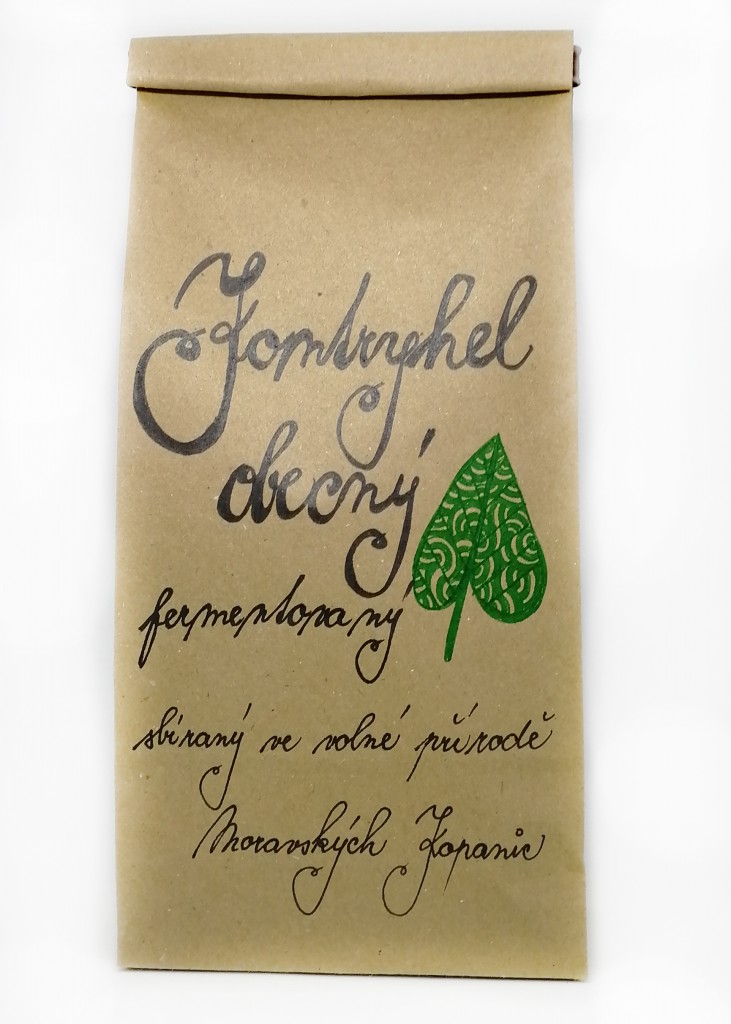 Kontryhel
obecný
fermentovaný
sbíraný ve volné přírodě
Moravských Kopanic